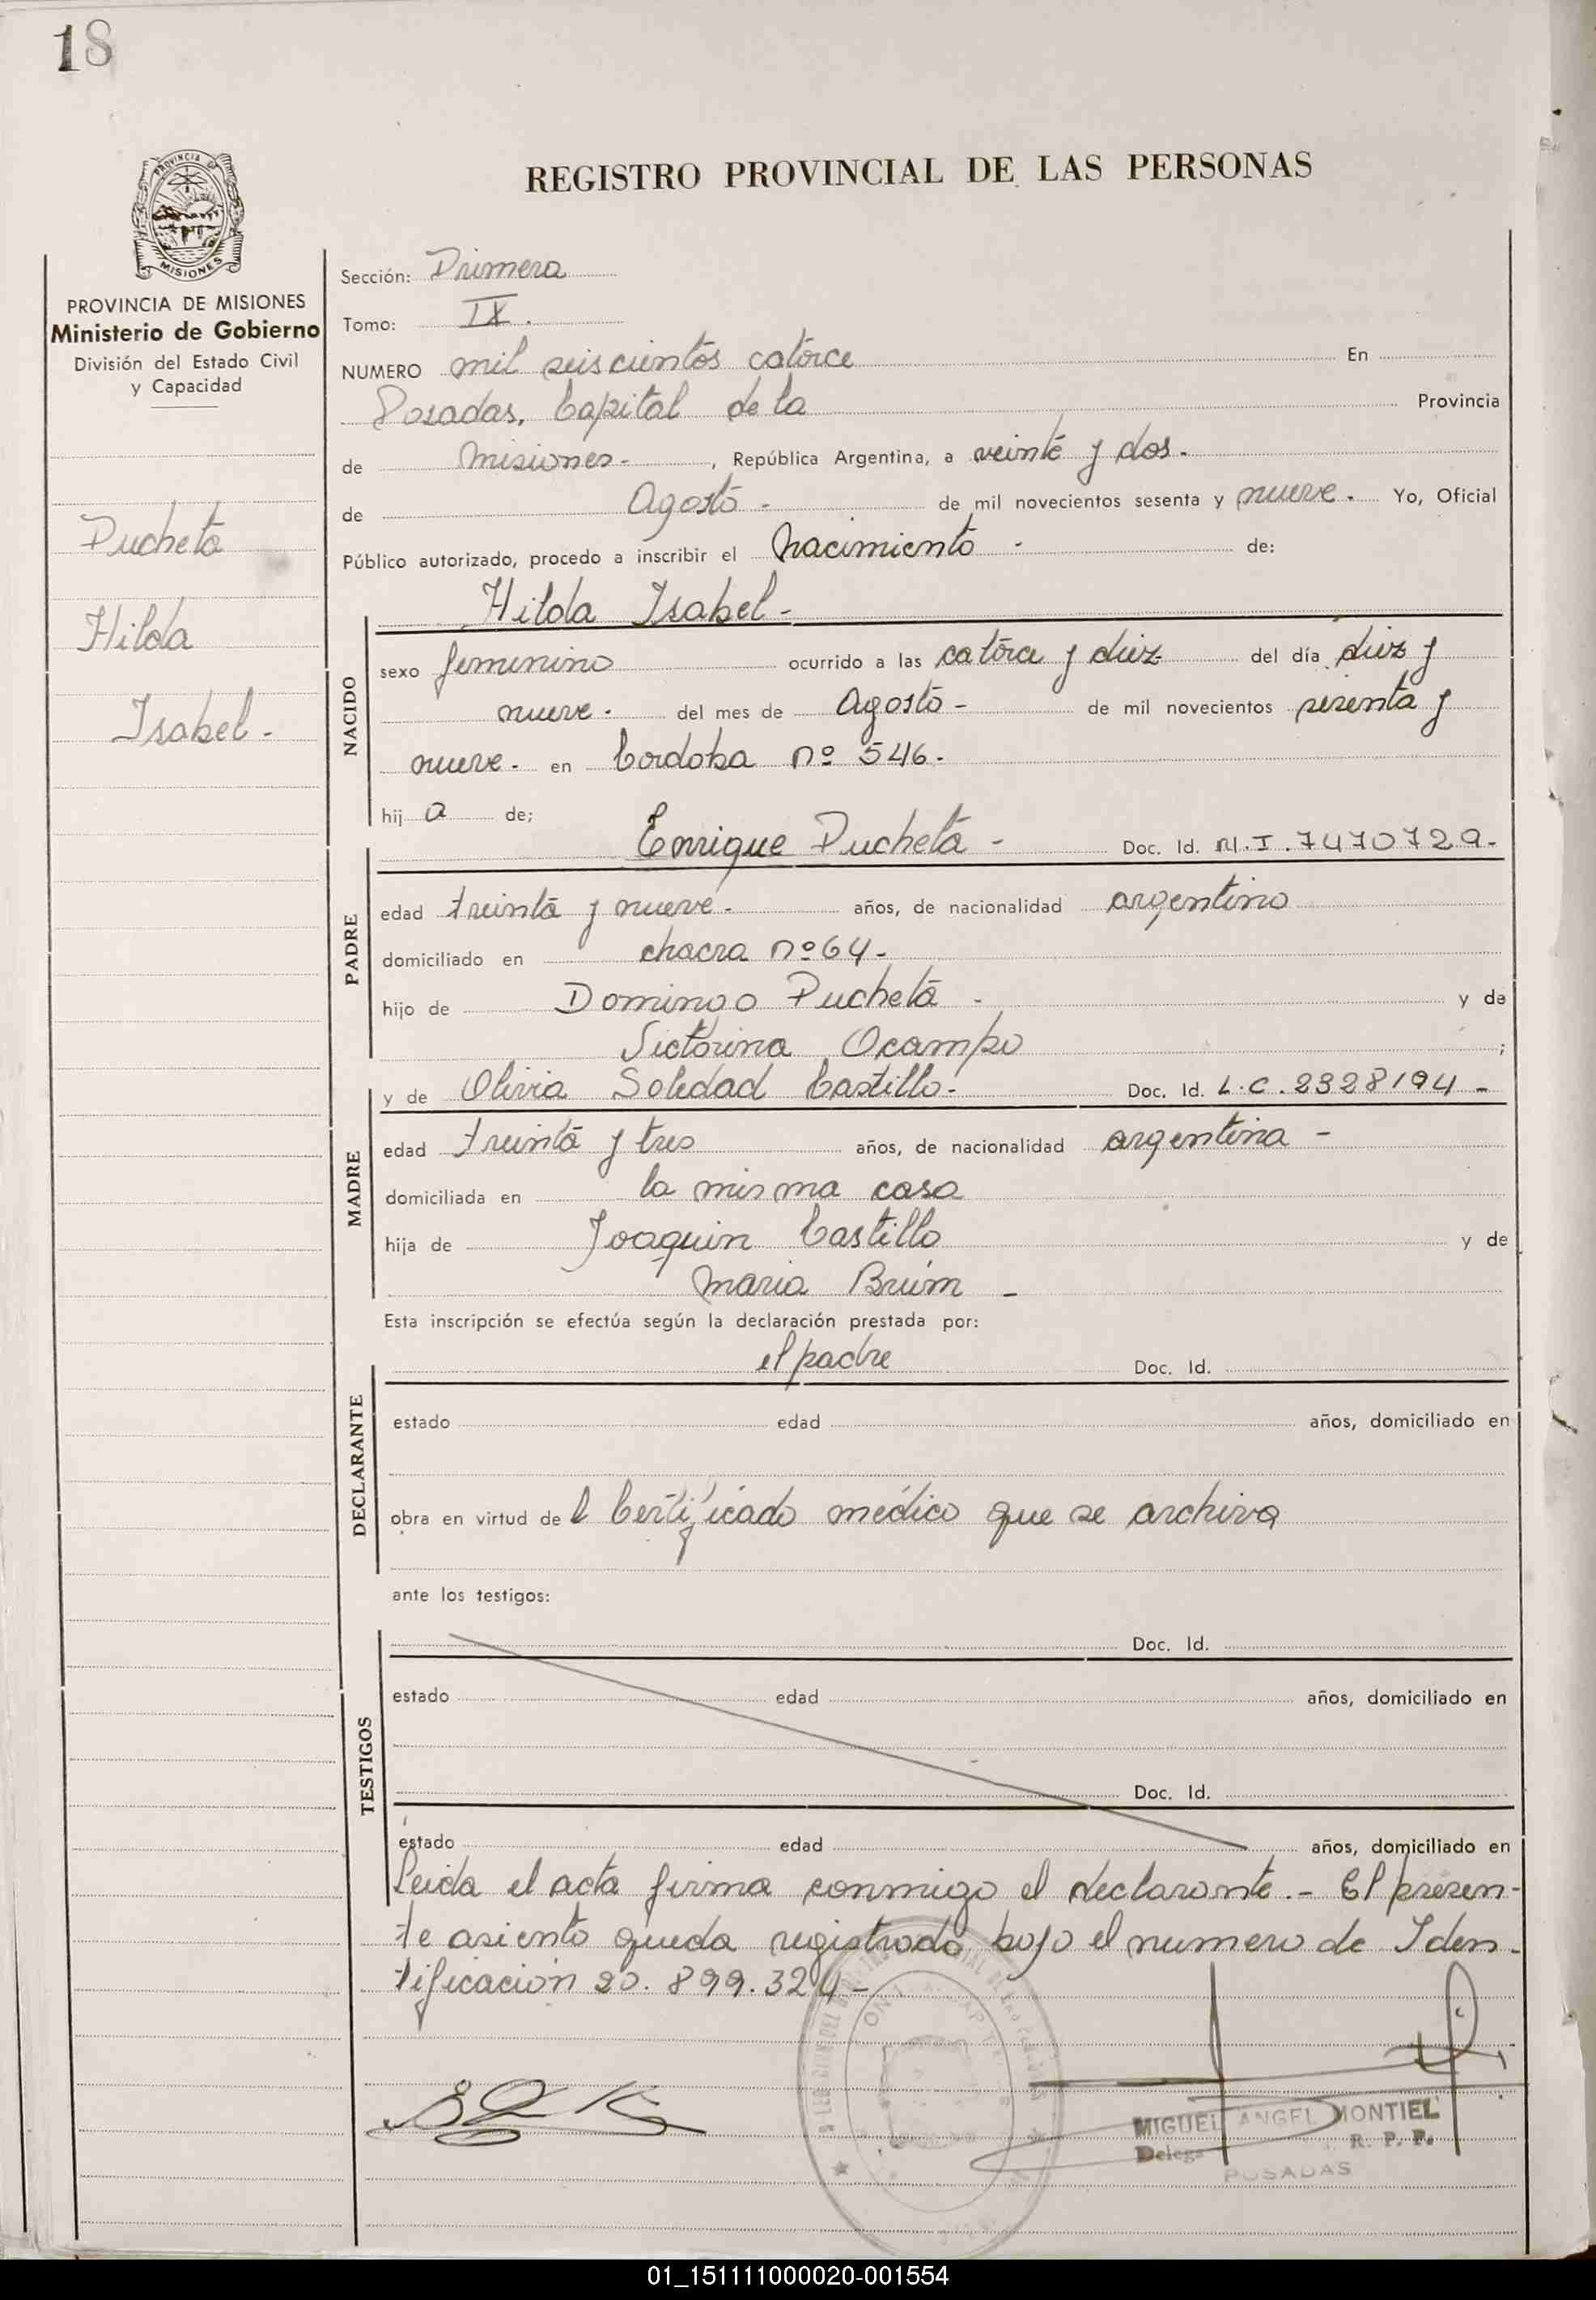 18
PROVINCIA DE
MISIONES
REGISTRO PROVINCIAL DE LAS PERSONAS
PROVINCIA DE MISIONES
Ministerio de Gobierno
División del Estado Civil
y Capacidad
Pucheta
Hilda
Isabel -
Sección: Primera
Tomo: IX.
NUMERO mil seiscientos catorce En
Posadas, Capital de la Provincia
de Misiones - , República Argentina, a veinte y dos -
de Agosto - de mil novecientos sesenta y nueve. Yo, Oficial
Público autorizado, procedo a inscribir el Nacimiento - de:
Hilda Isabel -
NACIDO
sexo femenino ocurrido a las catorce y diez del día diez y
nueve. del mes de Agosto - de mil novecientos sesenta y
nueve. en Cordoba nº 546.
hij a de;
Enrique Pucheta - Doc. Id. M.I. 7470729-
PADRE
edad treinta y nueve - años, de nacionalidad argentino
domiciliado en chacra nº 64-
hijo de Domingo Pucheta - y de
Victorina Ocampo ;
y de Olivia Soledad Castillo - Doc. Id. L.C. 2328194 -
MADRE
edad treinta y tres años, de nacionalidad argentina -
domiciliada en la misma casa
hija de Joaquin Castillo y de
Maria Bruim -
Esta inscripción se efectúa según la declaración prestada por:
el padre Doc. Id.
DECLARANTE
estado edad años, domiciliado en
obra en virtud de l Certificado médico que se archiva
ante los testigos:
Doc. Id.
TESTIGOS
estado edad años, domiciliado en
Doc. Id.
estado edad años, domiciliado en
Leida el acta firma conmigo el declarante.- El presen-
te asiento queda registrado bajo el numero de Iden-
tificación 20.899.324-
MIGUEL ANGEL MONTIEL
R. P. P.
POSADAS
01_151111000020-001554